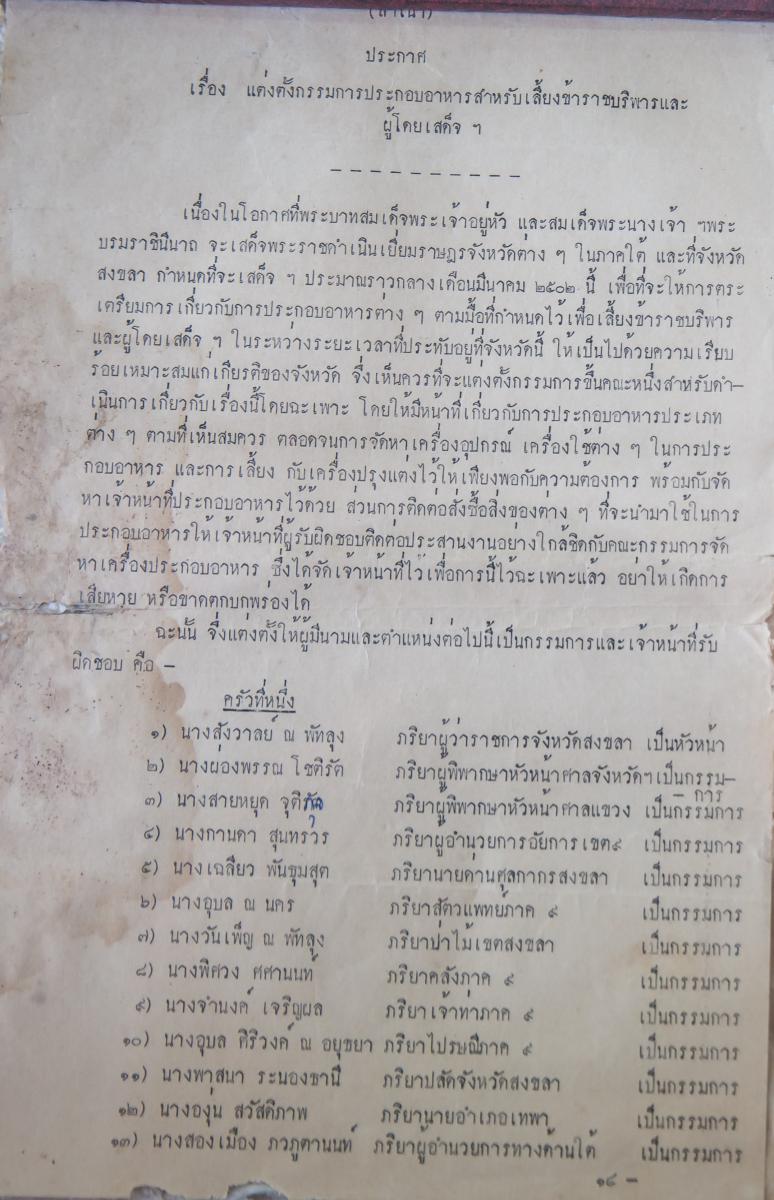 (สำเนา)
ประกาศ
เรื่อง แต่งตั้งกรรมการประกอบอาหารสำหรับเลี้ยงข้าราชบริพารและ
ผู้โดยเสด็จ ฯ
- - - - - - - - - -
เนื่องในโอกาศที่พระบาทสมเด็จพระเจ้าอยู่หัว และสมเด็จพระนางเจ้า ฯพระ
บรมราชินีนาถ จะเสด็จพระราชดำเนินเยี่ยมราษฎรจังหวัดต่าง ๆ ในภาคใต้ และที่จังหวัด
สงขลา กำหนดที่จะเสด็จ ฯ ประมาณราวกลางเดือนมีนาคม ๒๕๐๒ นี้ เพื่อที่จะให้การตระ
เตรียมการเกี่ยวกับการประกอบอาหารต่าง ๆ ตามมื้อที่กำหนดไว้เพื่อเลี้ยงข้าราชบริพาร
และผู้โดยเสด็จ ฯ ในระหว่างระยะเวลาที่ประทับอยู่ที่จังหวัดนี้ ให้เป็นไปด้วยความเรียบ
ร้อยเหมาะสมแก่เกียรติของจังหวัด จึ่งเห็นควรที่จะแต่งตั้งกรรมการขึ้นคณะหนึ่งสำหรับดำ-
เนินการเกี่ยวกับเรื่องนี้โดยฉะเพาะ โดยให้มีหน้าที่เกี่ยวกับการประกอบอาหารประเภท
ต่าง ๆ ตามที่เห็นสมควร ตลอดจนการจัดหาเครื่องอุปกรณ์ เครื่องใช้ต่าง ๆ ในการประ
กอบอาหาร และการเลี้ยง กับเครื่องปรุงแต่งไว้ให้เพียงพอกับความต้องการ พร้อมกับจัด
หาเจ้าหน้าที่ประกอบอาหารไว้ด้วย ส่วนการติดต่อสั่งซื้อสิ่งของต่าง ๆ ที่จะนำมาใช้ในการ
ประกอบอาหารให้เจ้าหน้าที่ผู้รับผิดชอบติดต่อประสานงานอย่างใกล้ชิดกับคณะกรรมการจัด
หาเครื่องประกอบอาหาร ซึ่งได้จัดเจ้าหน้าที่ไว้เพื่อการนี้ไว้ฉะเพาะแล้ว อย่าให้เกิดการ
เสียหาย หรือขาดตกบกพร่องได้
ฉะนั้น จึ่งแต่งตั้งให้ผู้มีนามและตำแหน่งต่อไปนี้เป็นกรรมการและเจ้าหน้าที่รับ
ผิดชอบ คือ -
ครัวที่หนึ่ง
๑) นางสังวาลย์ ณ พัทลุง ภริยาผู้ว่าราชการจังหวัดสงขลา เป็นหัวหน้า
๒) นางผ่องพรรณ โชติรัต ภริยาผู้พิพากษาหัวหน้าศาลจังหวัดฯเป็นกรรม-
- การ
๓) นางสายหยุด จุติกุล ภริยาผู้พิพากษาหัวหน้าศาลแขวง เป็นกรรมการ
๔) นางกานดา สุนทรวร ภริยาผู้อำนวยการอัยการเขต๙ เป็นกรรมการ
๕) นางเฉลียว พันชุมสุต ภริยานายด่านศุลกากรสงขลา เป็นกรรมการ
๖) นางอุบล ณ นคร ภริยาสัตวแพทย์ภาค ๙ เป็นกรรมการ
๗) นางวันเพ็ญ ณ พัทลุง ภริยาป่าไม้เขตสงขลา เป็นกรรมการ
๘) นางพิศวง ศศานนท์ ภริยาคลังภาค ๙ เป็นกรรมการ
๙) นางจำนงค์ เจริญผล ภริยาเจ้าท่าภาค ๙ เป็นกรรมการ
๑๐) นางอุบล ศิริวงค์ ณ อยุธยา ภริยาไปรษณีภาค ๙ เป็นกรรมการ
๑๑) นางพาสนา ระนองธานี ภริยาปลัดจังหวัดสงขลา เป็นกรรมการ
๑๒) นางองุ่น สวัสดิภาพ ภริยานายอำเภอเทพา เป็นกรรมการ
๑๓) นางสองเมือง ภวภูตานนท์ ภริยาผู้อำนวยการทางด้านใต้ เป็นกรรมการ
๑๔ -